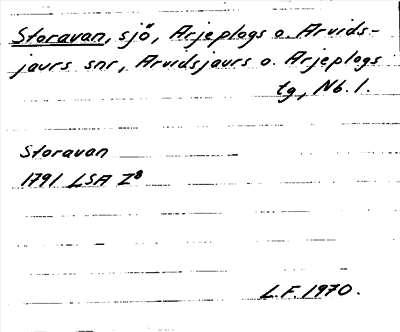 Storavan, sjö, Arjeplogs o. Arvids-
jaurs snr, Arvidsjaurs o. Arjeplogs
tg, Nb. l.
Storavan
1791 LSA Z⁸
L.F. 1970.